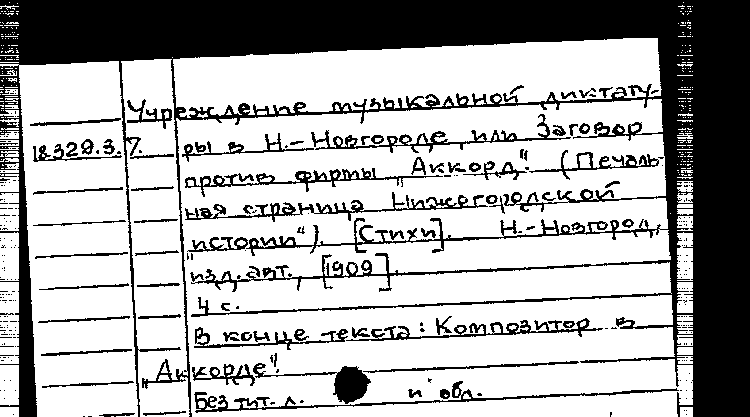 Учреждение музыкальной диктату-
18.329.3.7. ры в Н.-Новгороде, или Заговор
против фирмы „Аккорд“. (Печаль-
ная страница Нижегородской
„истории“). [Стихи]. Н.-Новгород,
изд. авт., [1909].
4 с.
В конце текста: Композитор в
„Аккорде“.
Без тит. л. и обл.